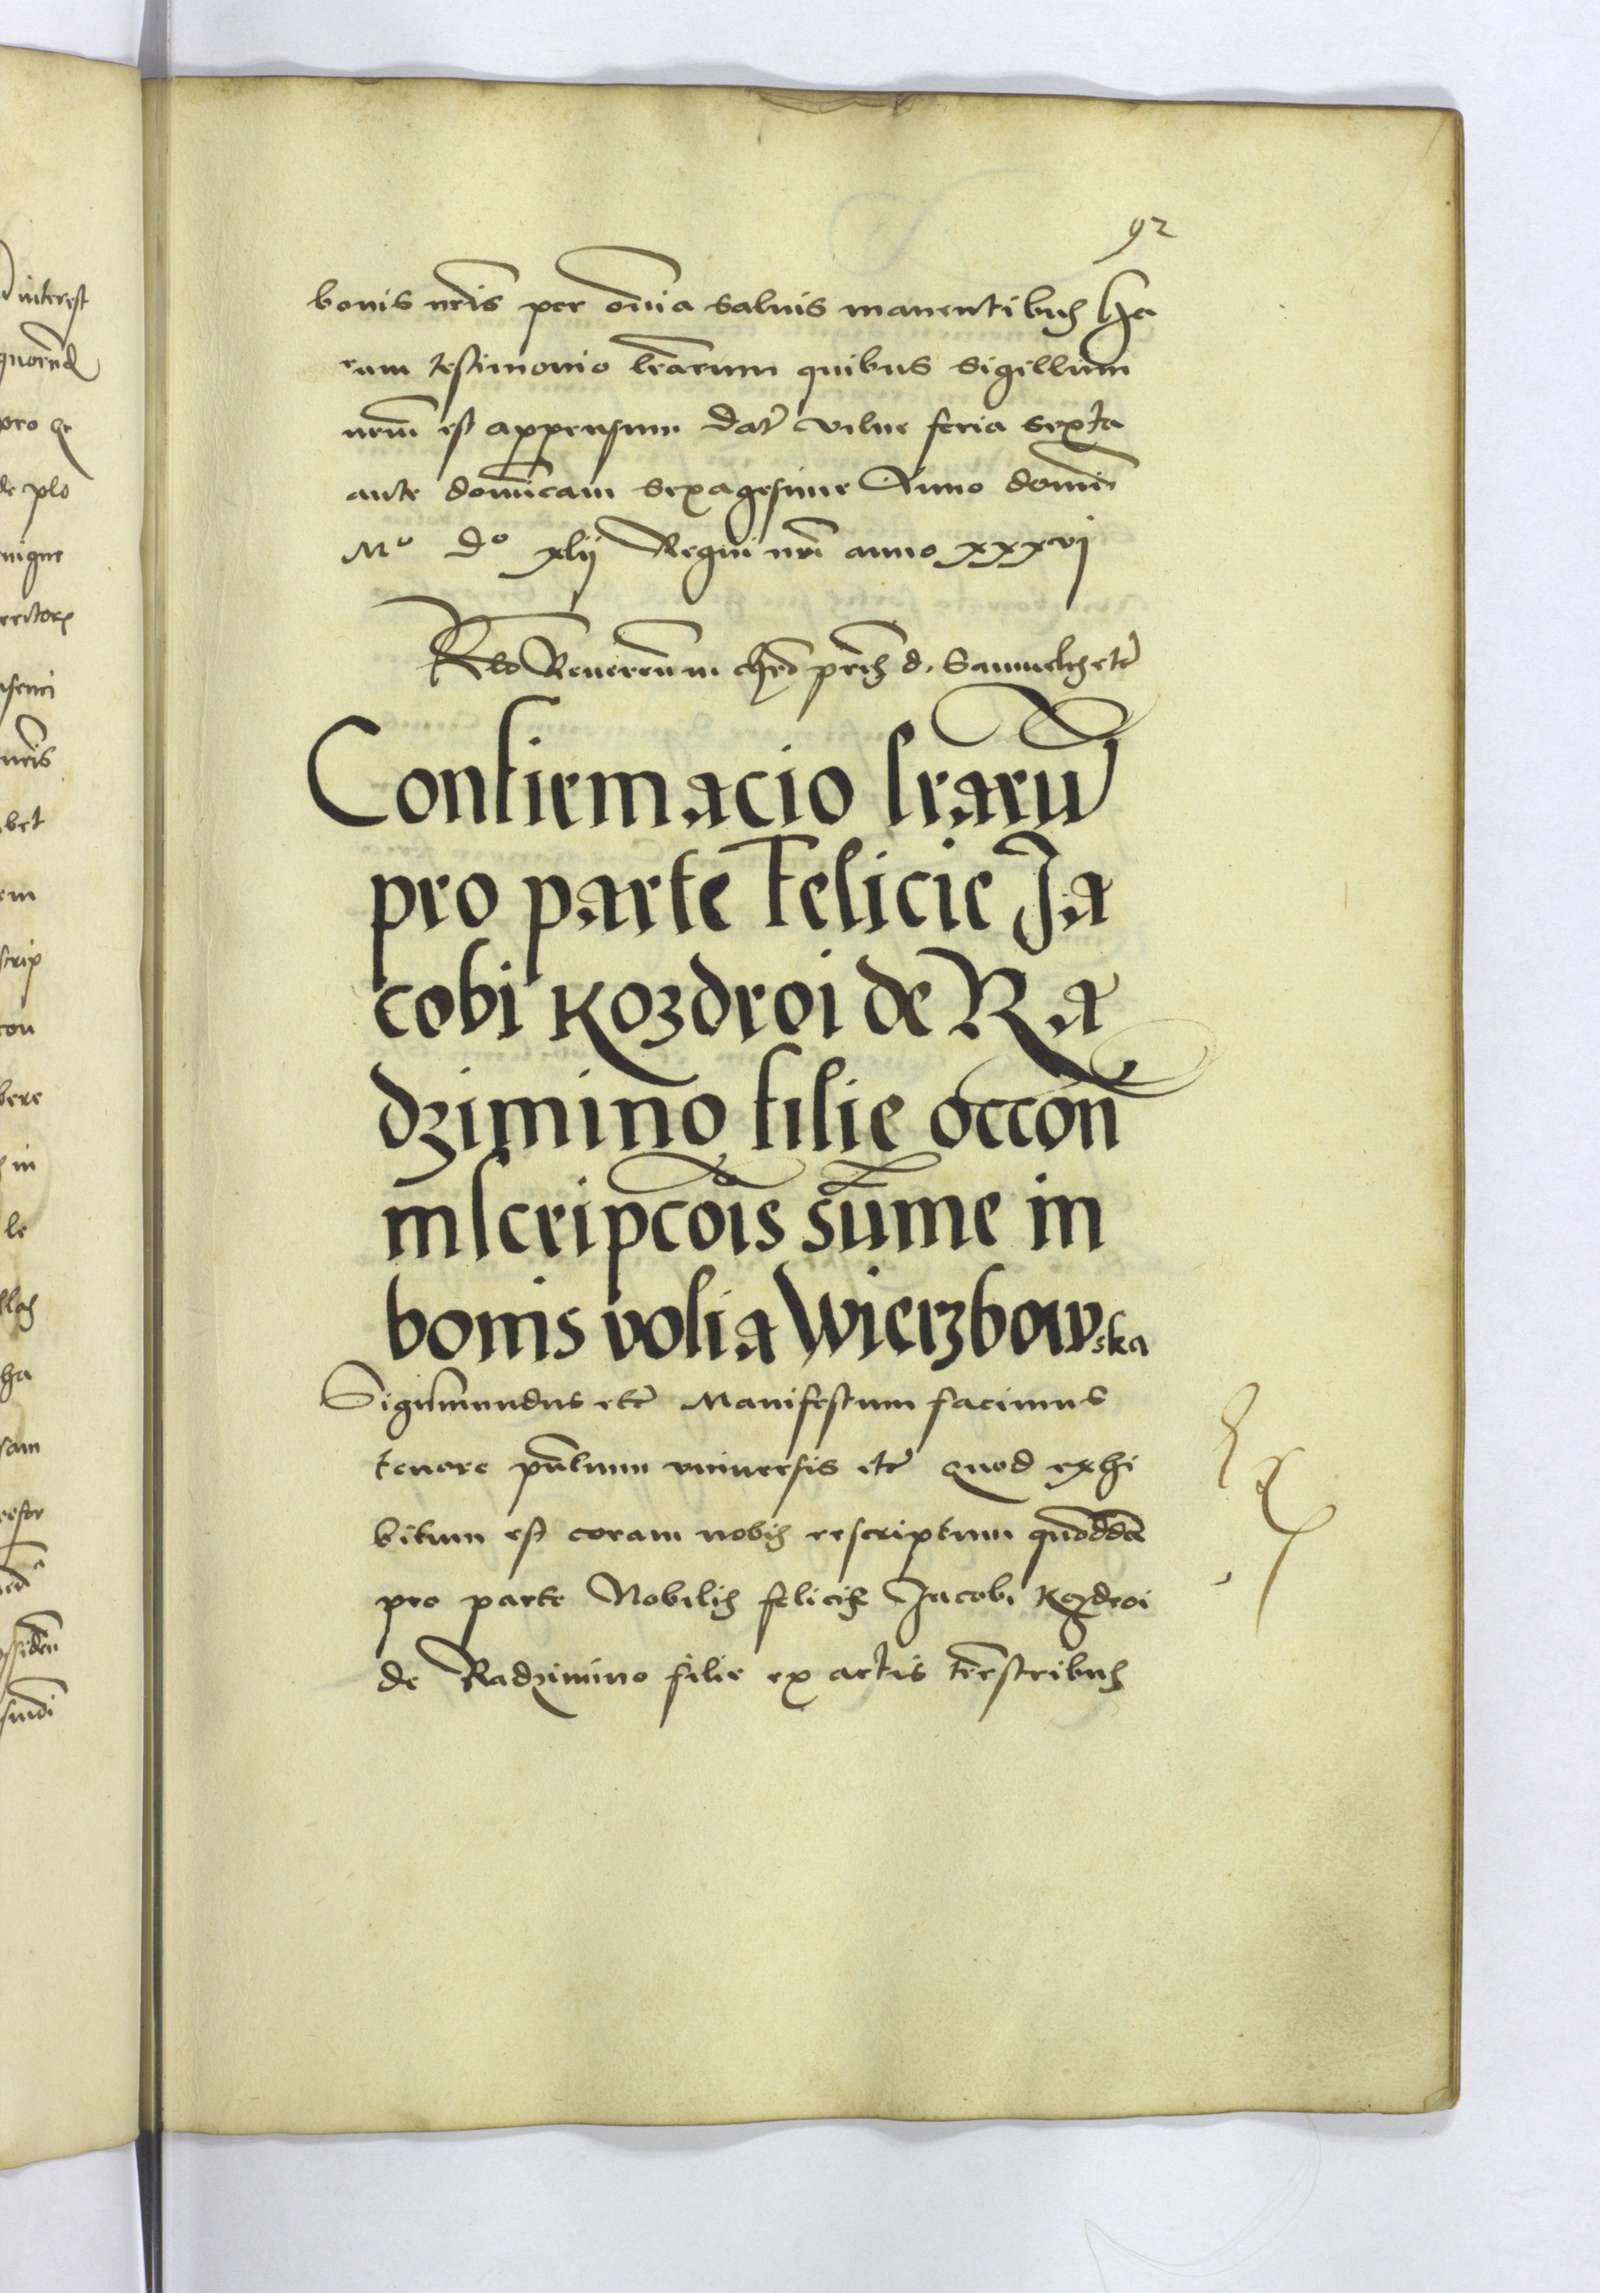 92
bonis nr̃is per om̃ia saluis manentibus ha
rum testimonio lr̃arum quibus sigillum
nr̃m est appensum Dat̃ vilne feria sexta
ante dominicam sexagesime Anno domini
Mº dº xlij Regni nr̃i anno xxxvj
Rlo Reueren̄ in chr̃o pr̃is d. Samuelis etc̃
Confirmacio lr̃arū
pro parte Felicie Ja
cobi Kozdroi de Ra
dzimino filie occon̄
inscripcōis sūme in
bonis volia Wierzbowska
Sigismundus etc̃ Manifestum facimus
tenore pn̄tium vniuersis etc̃ Quod exhi
bitum est coram nobis rescriptum quoddā
pro parte Nobilis felicis Jacobi Kozdroi
de Radzimino filie ex actis terrestribus